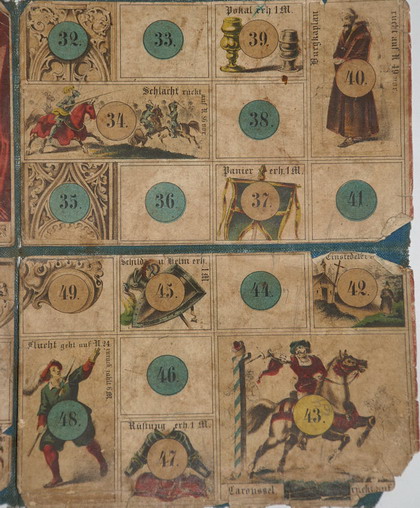 32.
33.
Pokal erh. 1 M.
39.
Burgkaplan
rückt auf N.
40.
Schlacht rückt
auf N.
34.
38.
35.
36.
Panier erh. 1 M.
37.
41.
49.
Schild u. Helm erh.
1 M.
45.
44.
Einsiedelei
42.
Flucht geht auf N. 24
zurück zahlt
M.
48.
46.
43.
Rüstung erh. 1 M.
47.
Caroussel
rückt auf